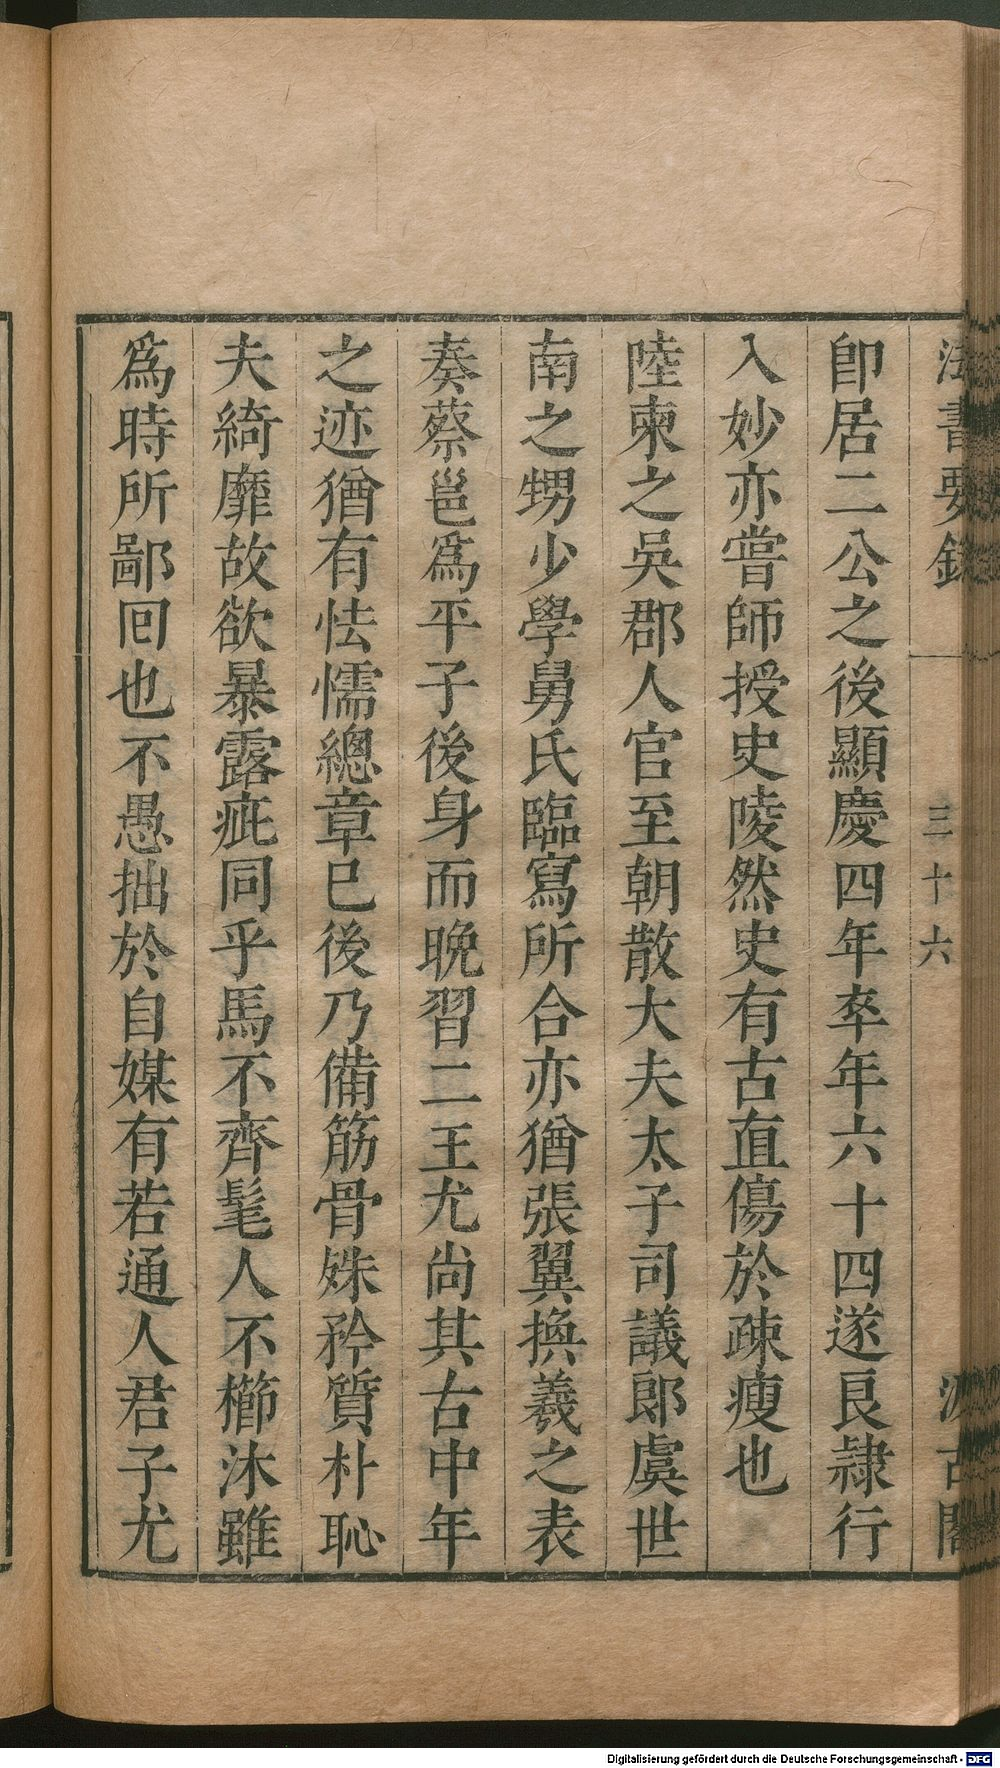 法書要錄　三十六　汲古閣
卽居二公之後顯慶四年卒年六十四遂良隷行
入妙亦嘗師授史陵然史有古直傷於疎瘦也
陸柬之吳郡人官至朝散大夫太子司議郎虞世
南之甥少學舅氏臨寫所合亦猶張翼換羲之表
奏蔡邕爲平子後身而晚習二王尤尚其古中年
之迹猶有怯懦總章已後乃備筋骨姝矜質朴恥
夫綺靡故欲暴露疵同乎馬不齊髦人不櫛沐雖
爲時所鄙回也不愚拙於自媒有若通人君子尤
Digitalisierung gefördert durch die Deutsche Forschungsgemeinschaft - DFG